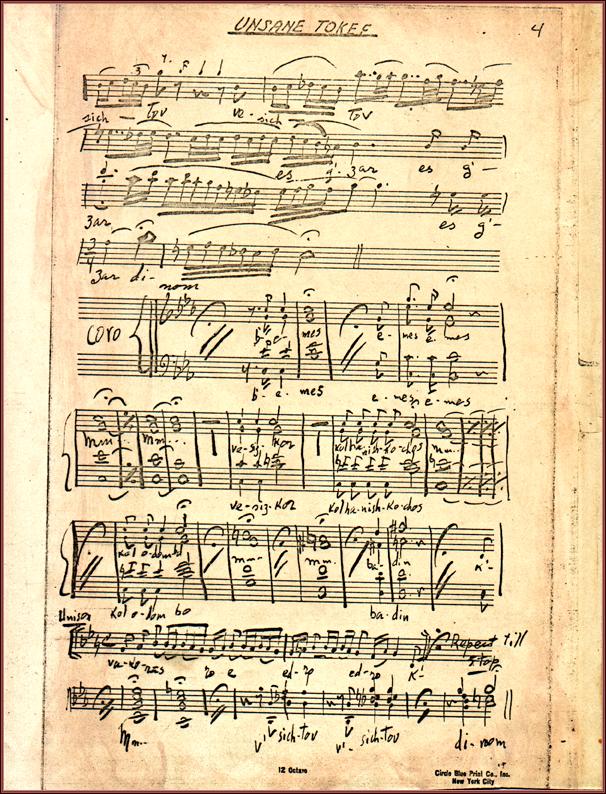 UNSANE TOKEF 4
sich - Tov ve - sich Tov
es g' 3ar es g' -
3ar es g' -
3ar di - nom
CORO b' - e - mes e - mes e - mes
b' - e - mes e - mes e - mes
Mm... Mm... ve - siz kor kol ha - nish - ko - chos m...
ve - siz - kor kol ha - nish - ko - chos
kol o - dom mm- mm- ba - din K' -
kol o - dom bo ba - din
Unison
va - ko - nes 30 e ed - ro ed - ro K' - Repeat till Stop.
Mm- v' sich - Tov v' - sich - Tov di - nom
12 Octavo
Circle Blue Print Co., Inc.
New York City